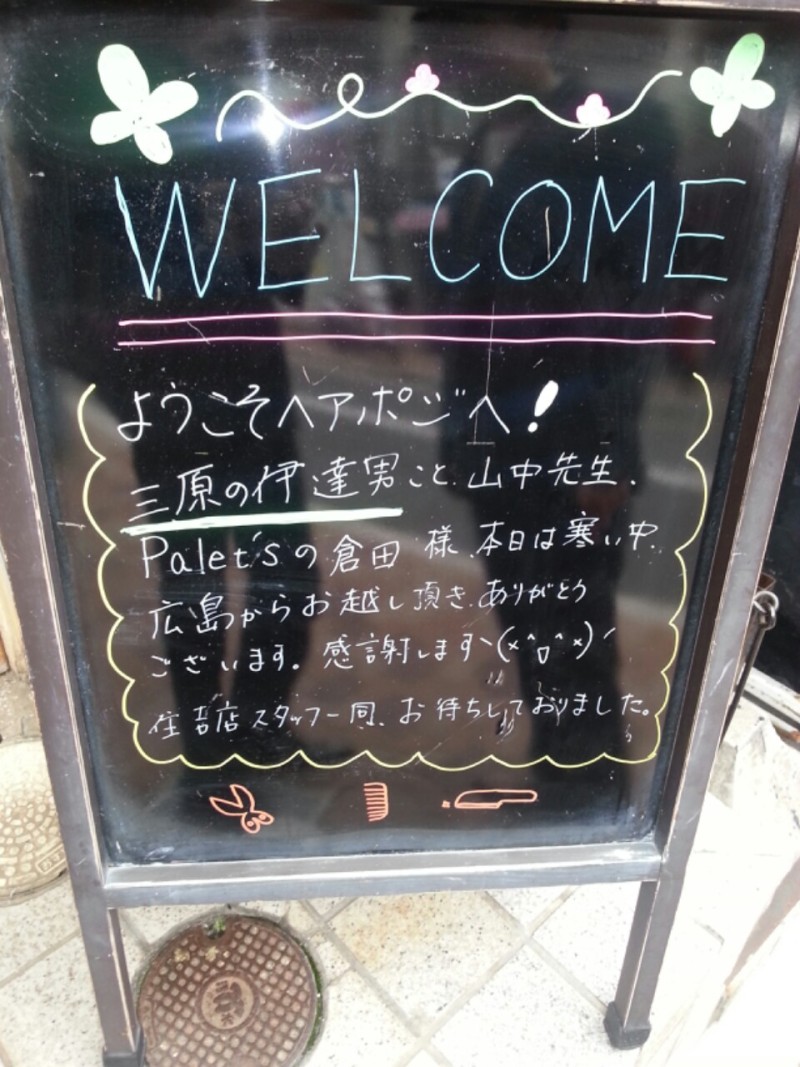 WELCOME
ようこそヘアポジへ！
三原の伊達男こと、山中先生、
Palet'sの倉田様、本日は寒い中、
広島からお越し頂き、ありがとう
ございます。感謝しますヽ(*^▽^*)ノ
住吉店スタッフ一同、お待ちしておりました。